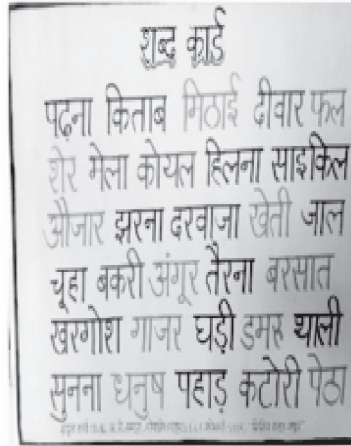 शब्द कार्ड
पढ़ना किताब मिठाई दीवार फल
शेर मेला कोयल हिलना साइकिल
औजार झरना दरवाजा खेती जाल
चूहा बकरी अंगूर तैरना बरसात
खरगोश गाजर घड़ी डमरू थाली
सुनना धनुष पहाड़ कटोरी पेठा